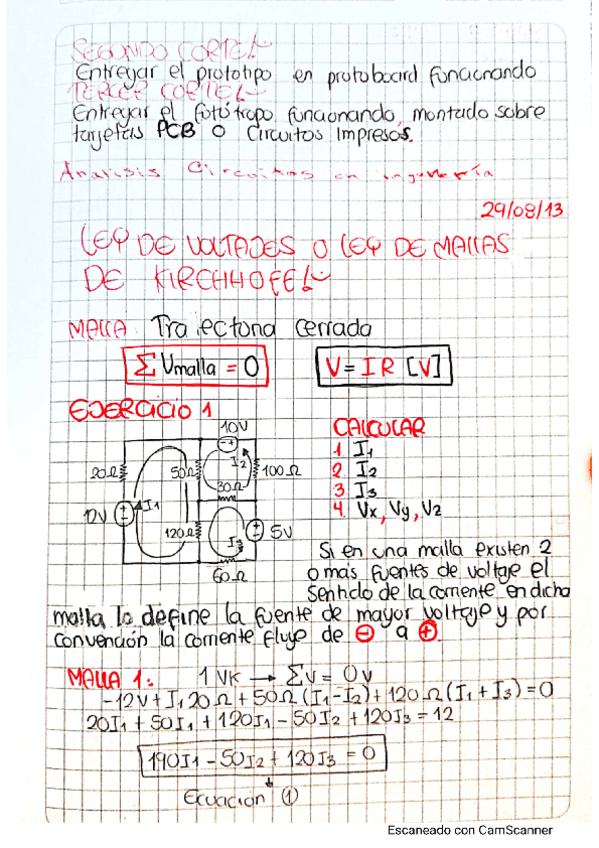 SEGUNDO CORTE
Entregar el prototipo en protoboard funcionando
TERCER CORTE
Entregar el fotótropo funcionando, montado sobre
tarjetas PCB o Circuitos Impresos.
Analisis Circuitos en ingeniería
29/08/13
LEY DE VOLTAJES O LEY DE MALLAS
DE KIRCHHOFF
MALLA: Trayectoria Cerrada
Σ Vmalla = 0
V = I R [V]
EJERCICIO 1
10V
20Ω
50Ω
I2
100Ω
30Ω
12V
I1
120Ω
I3
5V
60Ω
CALCULAR
1 I1
2 I2
3 I3
4 Vx, Vy, Vz
Si en una malla existen 2
o más fuentes de voltaje el
Sentido de la corriente en dicha
malla lo define la fuente de mayor voltaje y por
convención la corriente fluye de ⊖ a ⊕.
MALLA 1: 1 VK → ΣV = 0v
-12V + I1 20Ω + 50Ω (I1 - I2) + 120Ω (I1 + I3) = 0
20I1 + 50I1 + 120I1 - 50I2 + 120I3 = 12
190I1 - 50I2 + 120I3 = 0
Ecuación ①
Escaneado con CamScanner